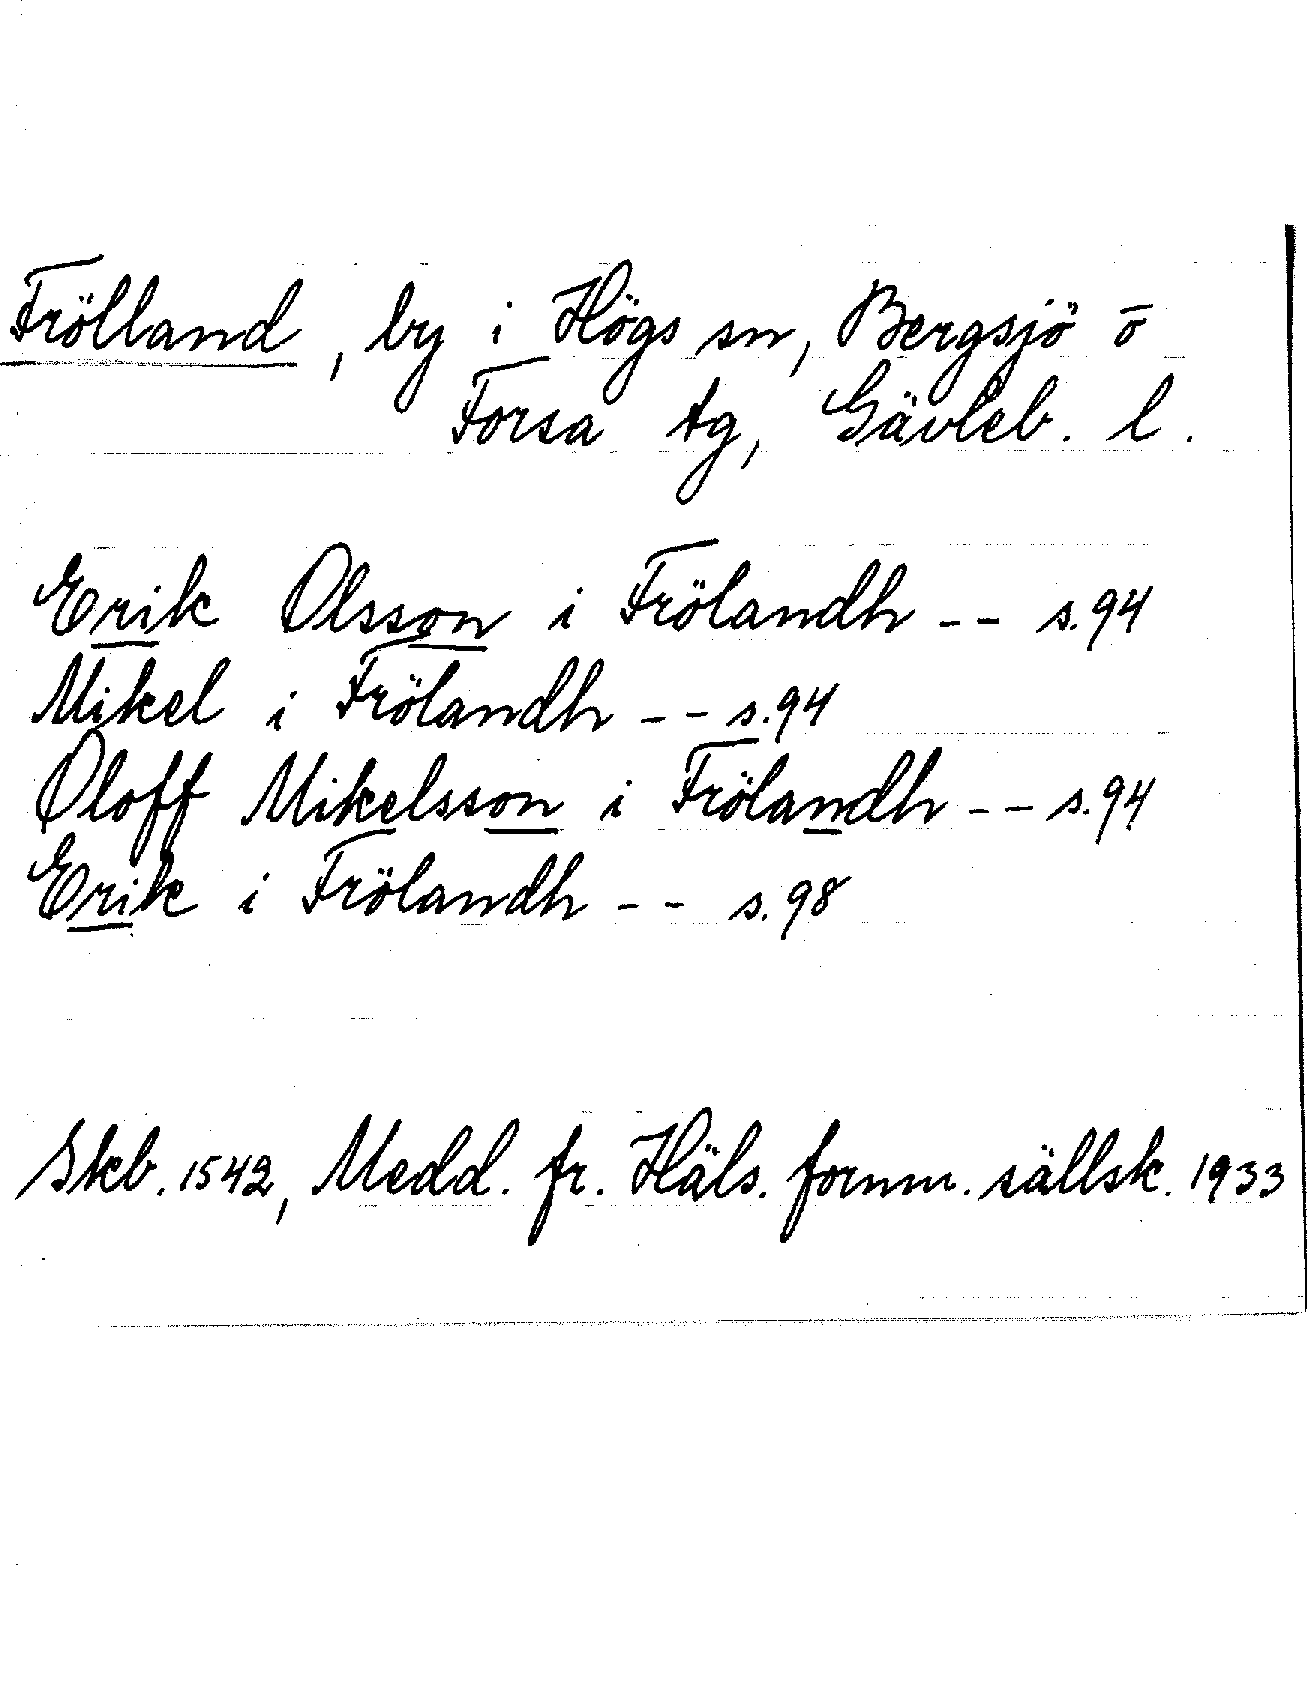 Frölland, by i Högs sn, Bergsjö o
Forsa tg, Gävleb. l.
Erik Olsson i Frölandh -- s.94
Mikel i Frölandh -- s.94
Oloff Mikelsson i Frölandh -- s.94
Erik i Frölandh -- s.98
Skb. 1542, Medd. fr. Häls. fornm. sällsk. 1933